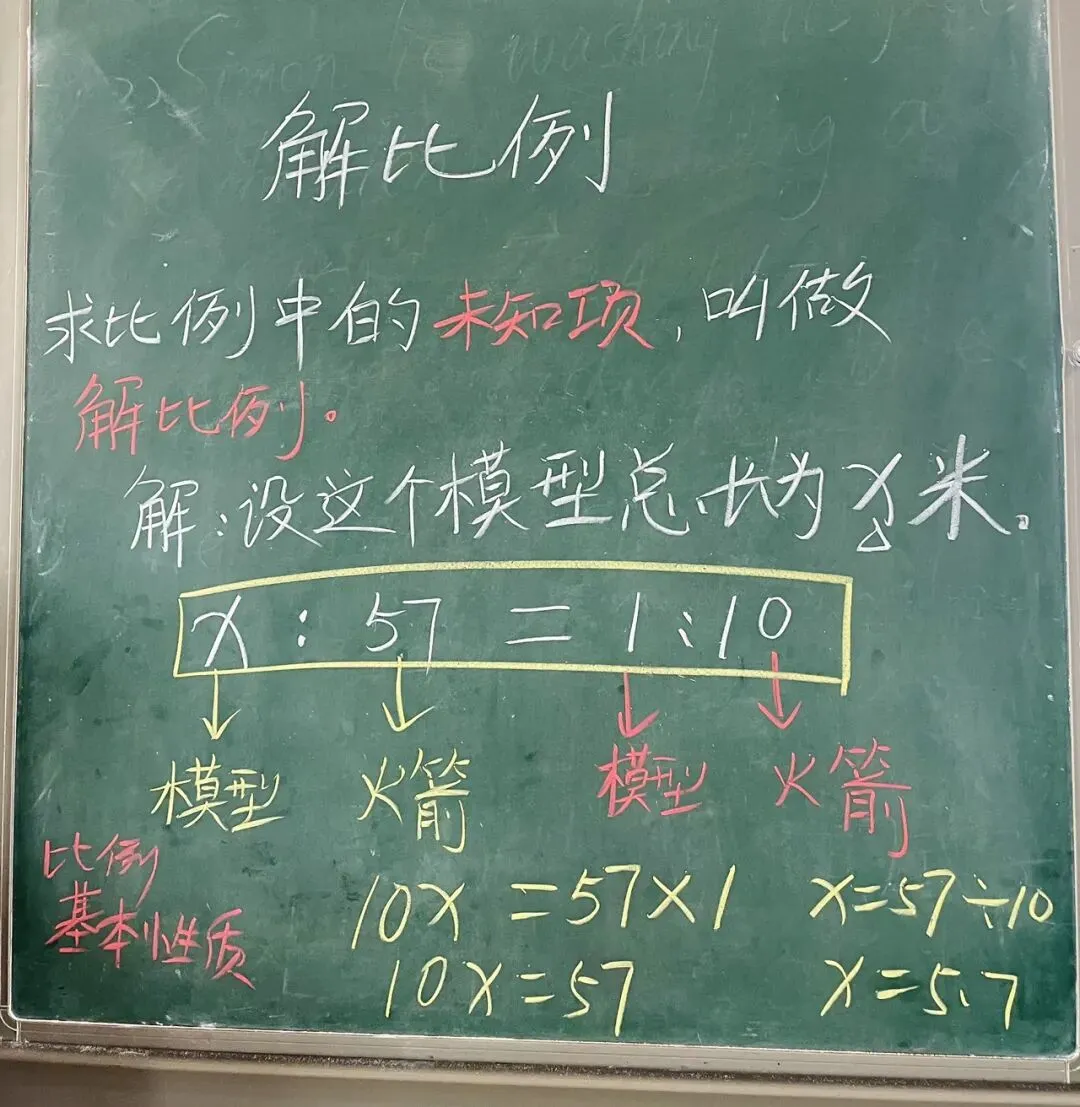 Simon is washing
a
解比例
求比例中的未知项,叫做
解比例。
解:设这个模型总长为x米。
x : 57 = 1 : 10
模型 火箭 模型 火箭
比例
基本性质
10x = 57×1 x=57÷10
10x=57 x=5.7